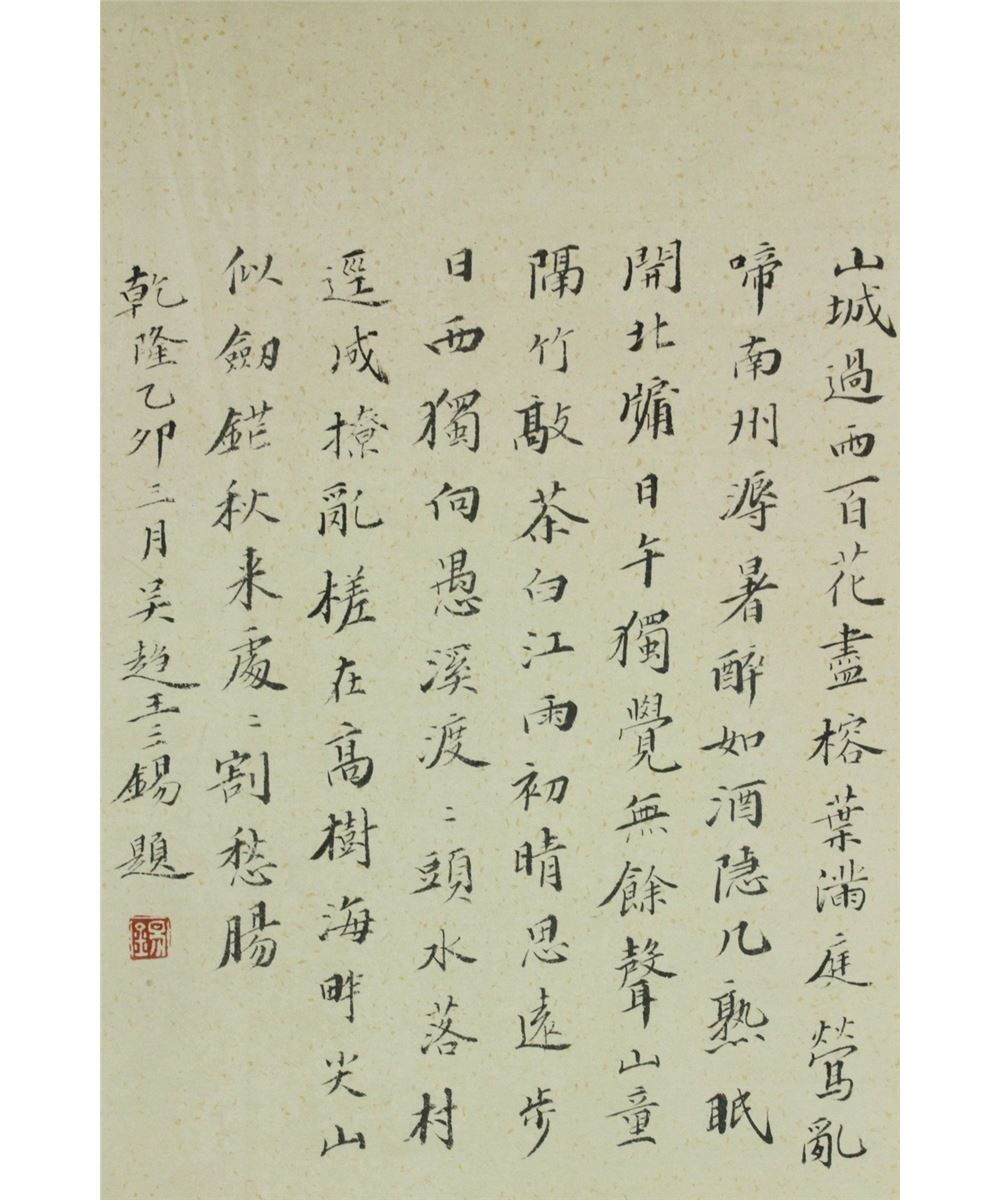 山城過雨百花盡榕葉滿庭鶯亂
啼南州溽暑醉如酒隱几熟眠
開北牖日午獨覺無餘聲山童
隔竹敲茶臼江雨初晴思遠步
日西獨向愚溪渡〻頭水落村
逕成撩亂槎在高樹海畔尖山
似劒鋩秋来處〻割愁腸
乾隆乙卯三月吴趨王三錫題
錫